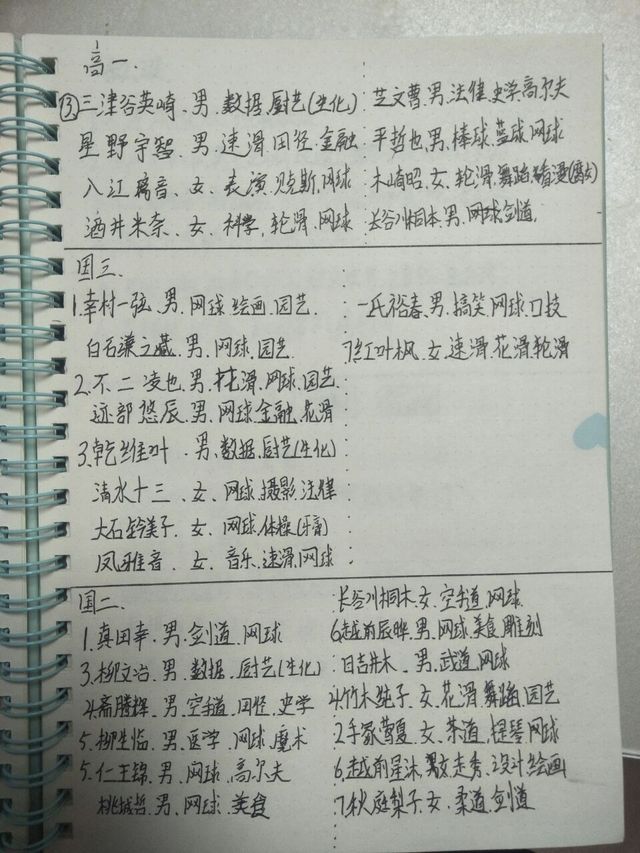 高一.
③三津谷英崎、男、数据、厨艺(生化)
星野宇智、男、速滑、田径、金融
入江璃音、女、表演、贝克斯、网球
酒井米奈、女、科学、轮滑、网球
芝文曹、男、法律、史学、高尔夫
平哲也、男、棒球、蓝球、网球
木崎昭、女、轮滑、舞蹈
长谷川桐本、男、网球、剑道、
国三.
1.幸村一弦、男、网球、绘画、园艺.
白石谦之藏、男、网球、园艺.
2.不二凌也、男、花滑、网球、园艺
迹部悠辰、男、网球、金融、花滑
3.乾维叶、男、数据、厨艺(生化)
清水十三、女、网球、摄影、法律
大石铃美子、女、网球、体操、(牙膏)
凤雅音、女、音乐、速滑、网球
一氏裕春、男、搞笑、网球、口技
7.红叶枫、女、速滑、花滑、轮滑
国二.
1.真田幸、男、剑道、网球
3.柳文治、男、数据、厨艺(生化)
4.斋腾辉、男、空手道、田径、史学
5.柳生临、男、医学、网球、魔术
5.仁王锦、男、网球、高尔夫
桃城哲、男、网球、美食
长谷川桐木、女、空手道、网球
6.越前辰晔、男、网球、美食、雕刻
日吉井木、男、武道、网球
4.竹木纯子、女、花滑、舞蹈、园艺
2.手冢莺夏、女、茶道、提琴、网球
6.越前星沐、男、走秀、设计、绘画
7.秋庭梨子、女、柔道、剑道